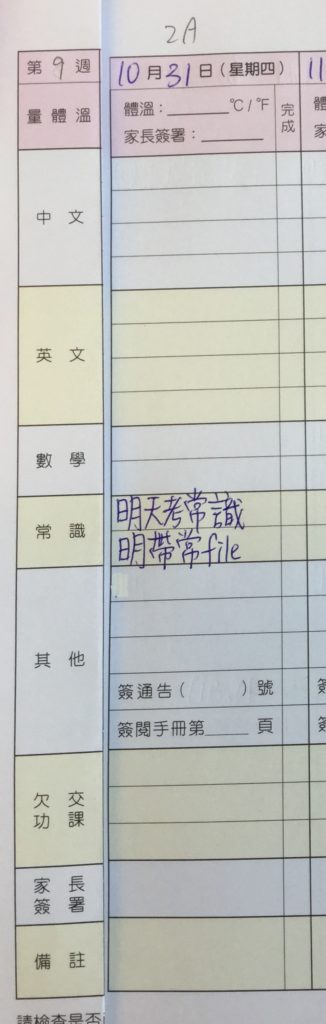 2A
第9週
10月31日(星期四)
11
量體溫
體溫：______℃/℉
家長簽署：______
完成
體
家
中文
英文
數學
常識
明天考常識
明帶常file
其他
簽通告( )號
簽閱手冊第____頁
欠交
功課
家長
簽署
備註
請檢查是否